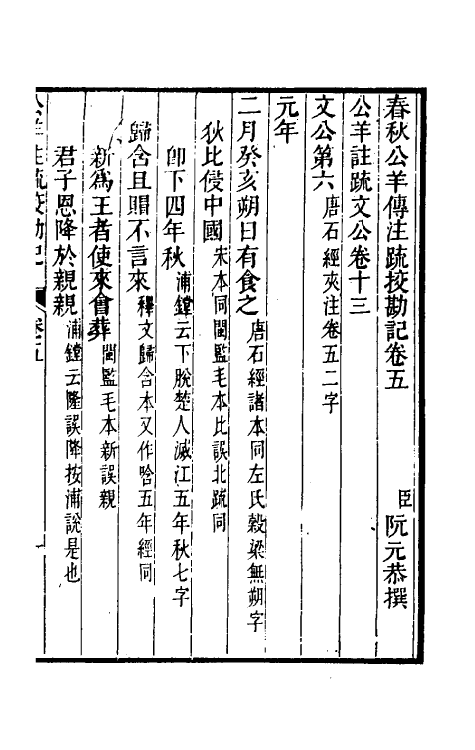 春秋公羊傳注疏挍勘記卷五　臣阮元恭撰
公羊註疏文公卷十三
文公第六唐石經夾注卷五二字
元年
二月癸亥朔日有食之唐石經諸本同左氏穀梁無朔字
狄比侵中國宋本同閩監毛本比誤北疏同
卽下四年秋浦鏜云下脫楚人滅江五年秋七字
歸含且賵不言來釋文歸含本又作唅五年經同
新為王者使來會葬閩監毛本新誤親
君子恩降於親親浦鏜云隆誤降按浦說是也
公羊註疏挍勘記　卷十五